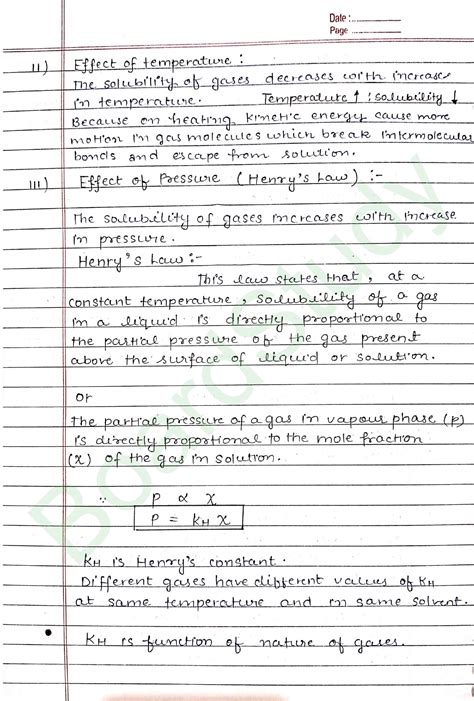 Date :
Page
ii) Effect of temperature :
The solubility of gases decreases with increase
in temperature. Temperature ↑ : Solubility ↓
Because on heating, kinetic energy cause more
motion in gas molecules which break intermolecular
bonds and escape from solution.
iii) Effect of Pressure (Henry's Law) :-
The solubility of gases increases with increase
in pressure.
Henry's Law :-
This law states that, at a
constant temperature, Solubility of a gas
in a liquid is directly proportional to
the partial pressure of the gas present
above the surface of liquid or solution.
or
The partial pressure of a gas in vapour phase (p)
is directly proportional to the mole fraction
(x) of the gas in solution.
∵ P ∝ x
P = KH x
KH is Henry's constant.
Different gases have different values of KH
at same temperature and in same solvent.
• KH is function of nature of gases.
BoardStudy